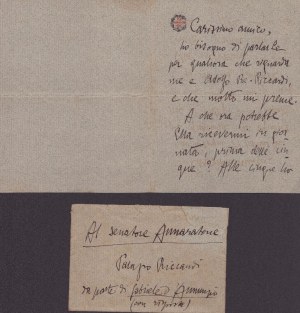 Carissimo amico,
ho bisogno di parlarle
per qualcosa che riguarda
me e Adolfo Re-Riccardi,
e che molto mi preme.
A che ora potrebbe
Ella ricevermi in gior-
nata, prima delle cin-
que? Alle cinque ho
Al Senatore Annaratone
Palazzo Riccardi
da parte di Gabriele d'Annunzio
(con risposta)